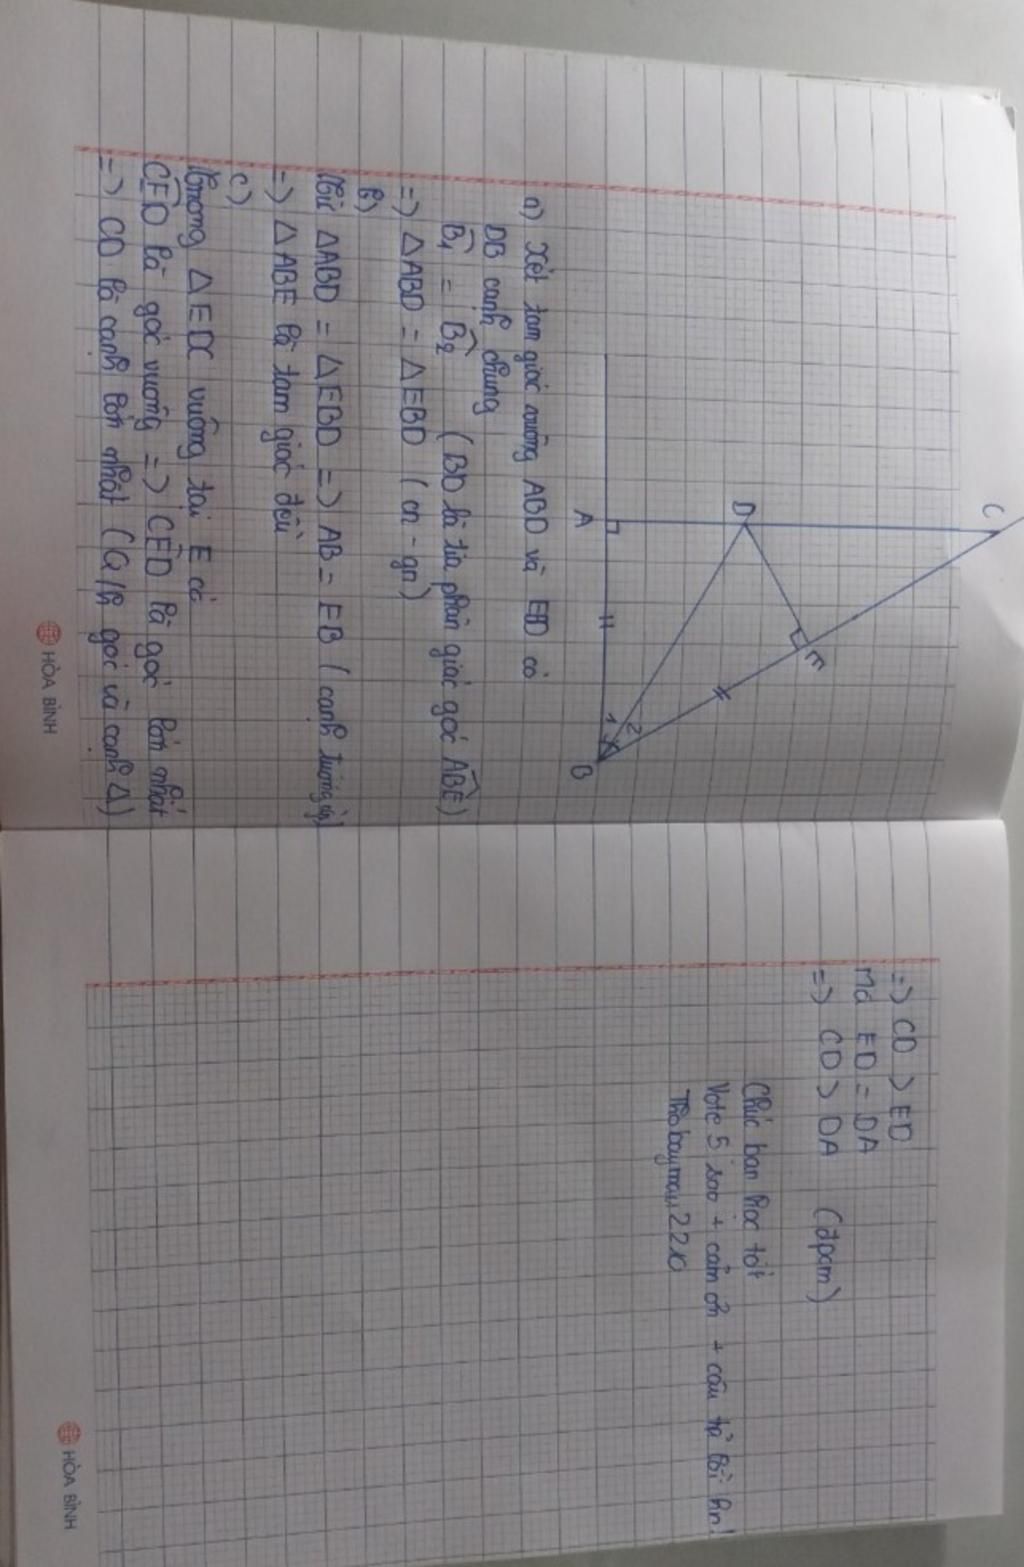 C
D
E
A
B
1
2
a) Xét tam giác vuông ABD và EBD có
DB cạnh chung
B₁ = B₂ (BD là tia phân giác góc ABE)
=> ΔABD = ΔEBD (ch - gn)
b)
Từ ΔABD = ΔEBD => AB = EB (cạnh tương ứng)
=> ΔABE là tam giác đều
c)
Trong ΔEDC vuông tại E có
CED là góc vuông => CED là góc lớn nhất
=> CD là cạnh lớn nhất (Q/h góc và cạnh Δ)
HÒA BÌNH
=> CD > ED
mà ED = DA
=> CD > DA (đpcm)
Chúc bạn học tốt
Vote 5 sao + cảm ơn + câu trả lời hn!
HÒA BÌNH